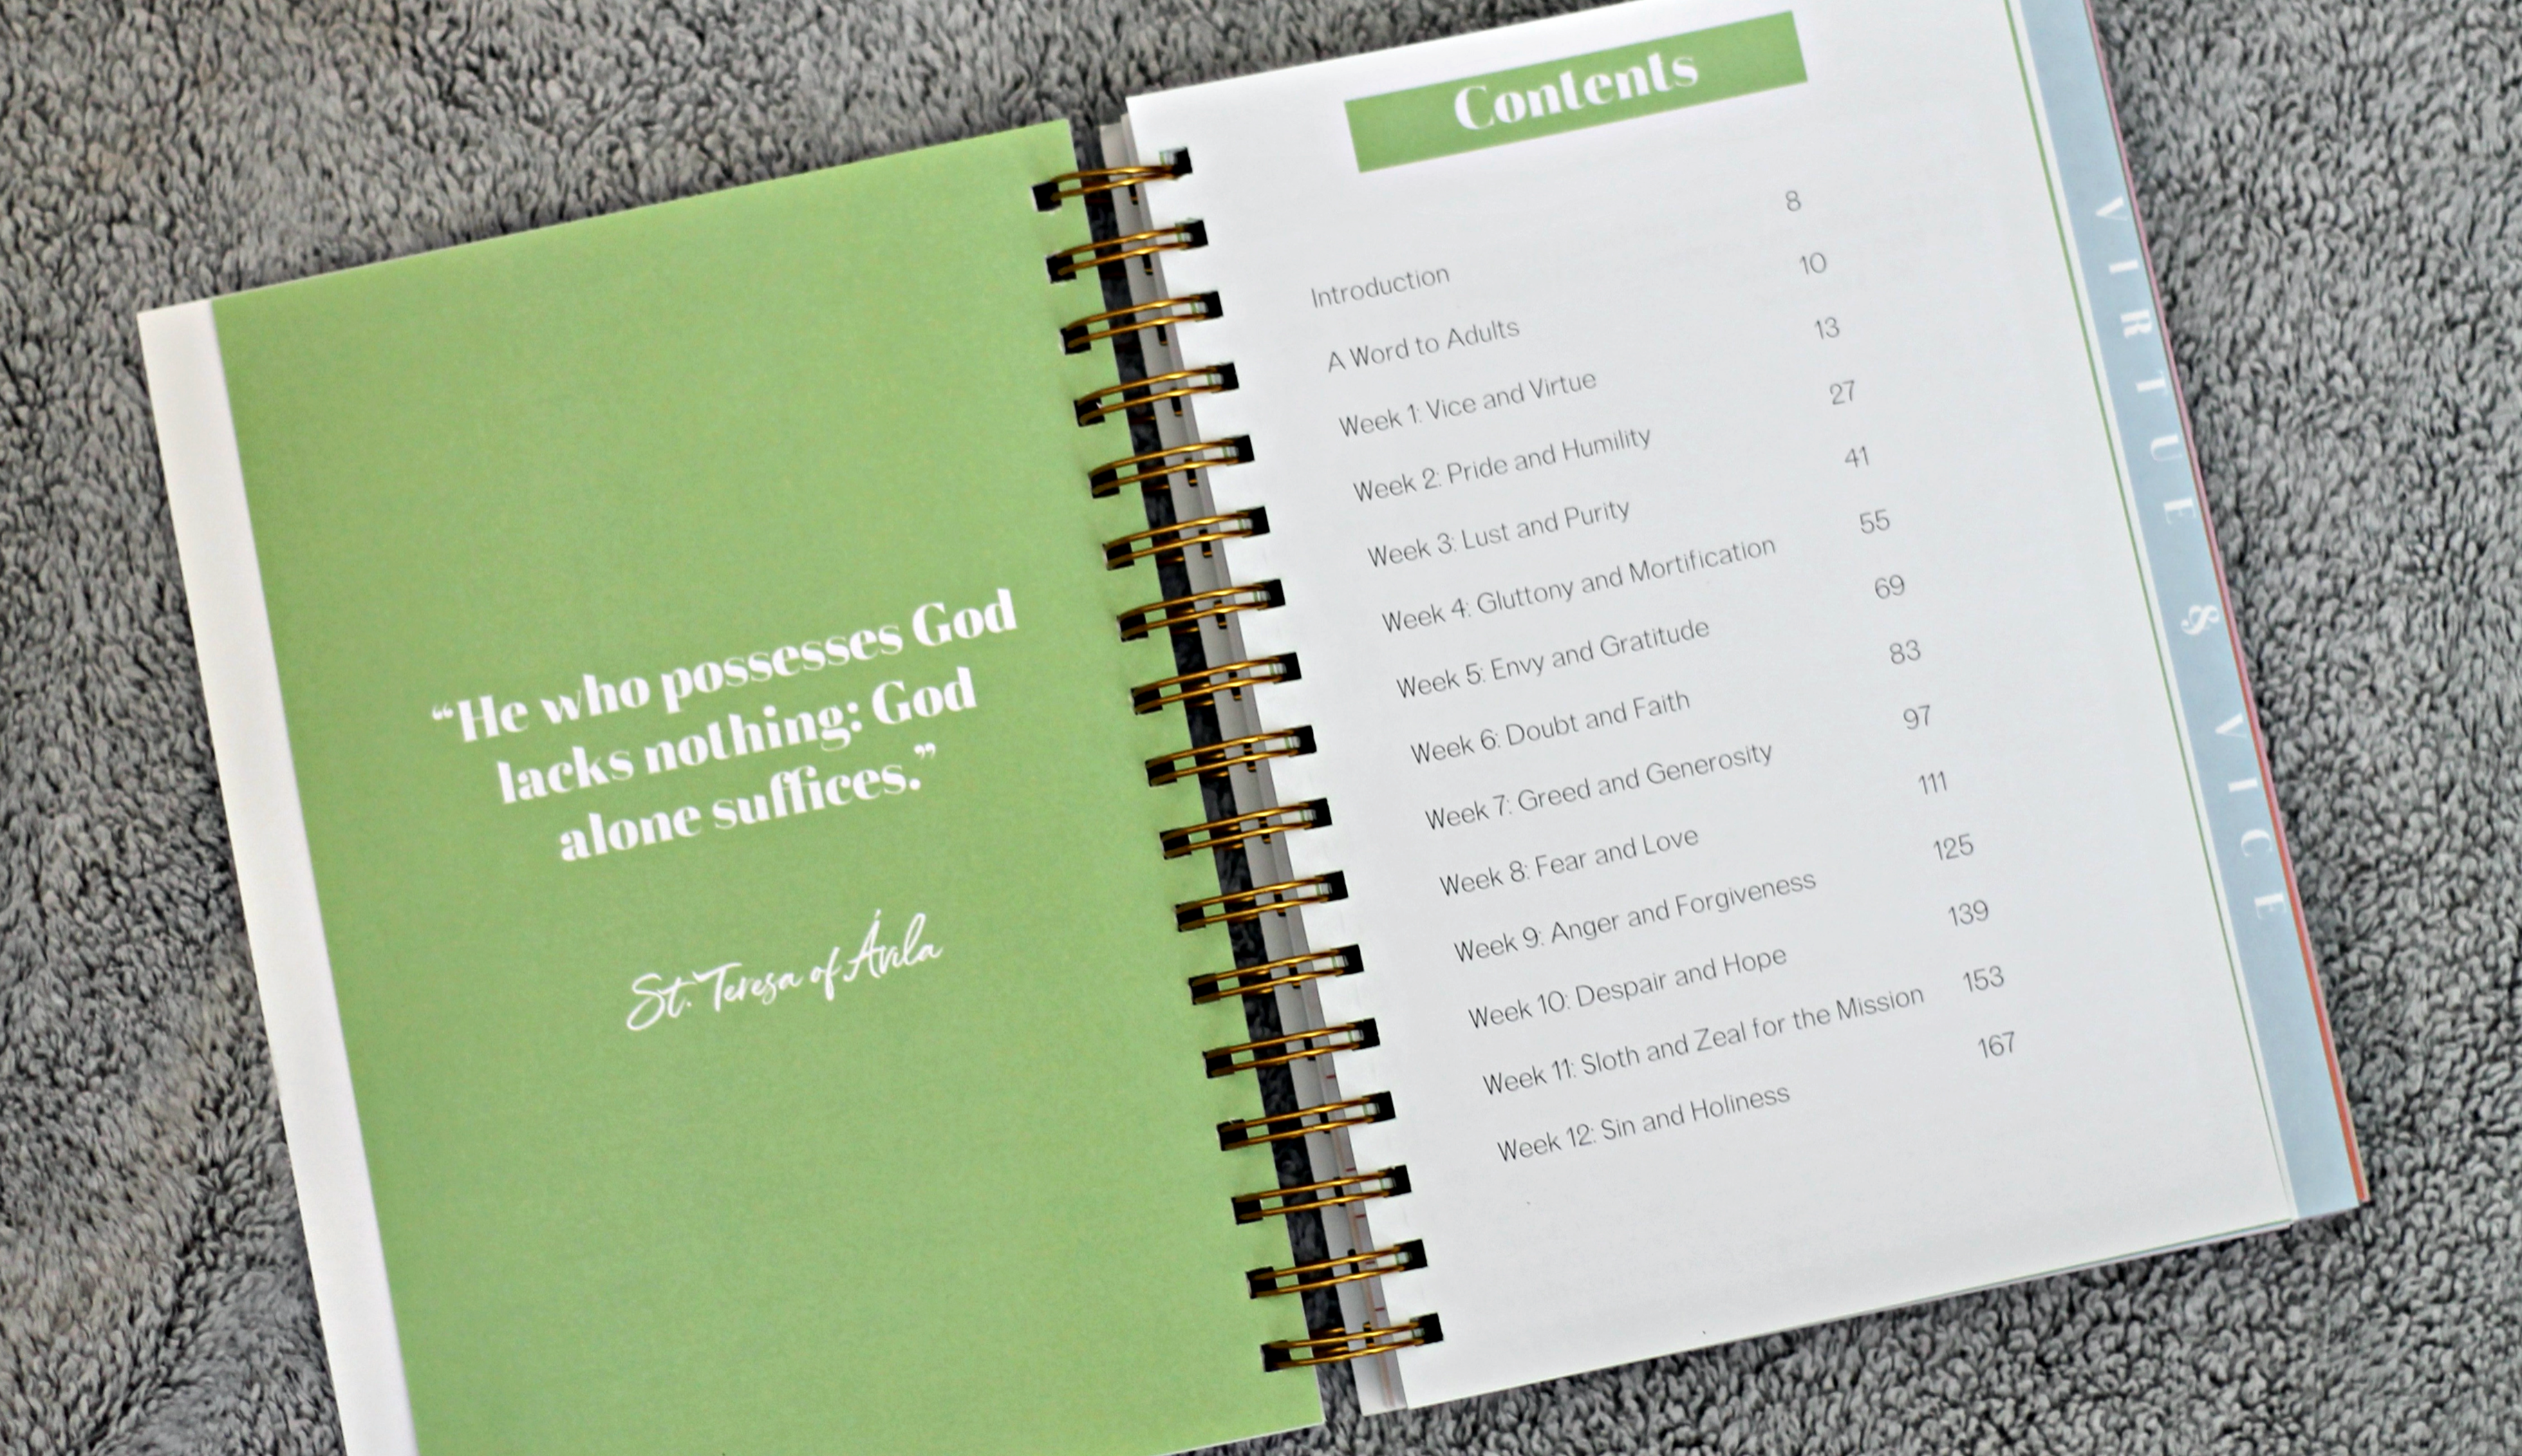 “He who possesses God
lacks nothing: God
alone suffices.”
St. Teresa of Ávila
Contents
Introduction 8
A Word to Adults 10
Week 1: Vice and Virtue 13
Week 2: Pride and Humility 27
Week 3: Lust and Purity 41
Week 4: Gluttony and Mortification 55
Week 5: Envy and Gratitude 69
Week 6: Doubt and Faith 83
Week 7: Greed and Generosity 97
Week 8: Fear and Love 111
Week 9: Anger and Forgiveness 125
Week 10: Despair and Hope 139
Week 11: Sloth and Zeal for the Mission 153
Week 12: Sin and Holiness 167
VIRTUE & VICE